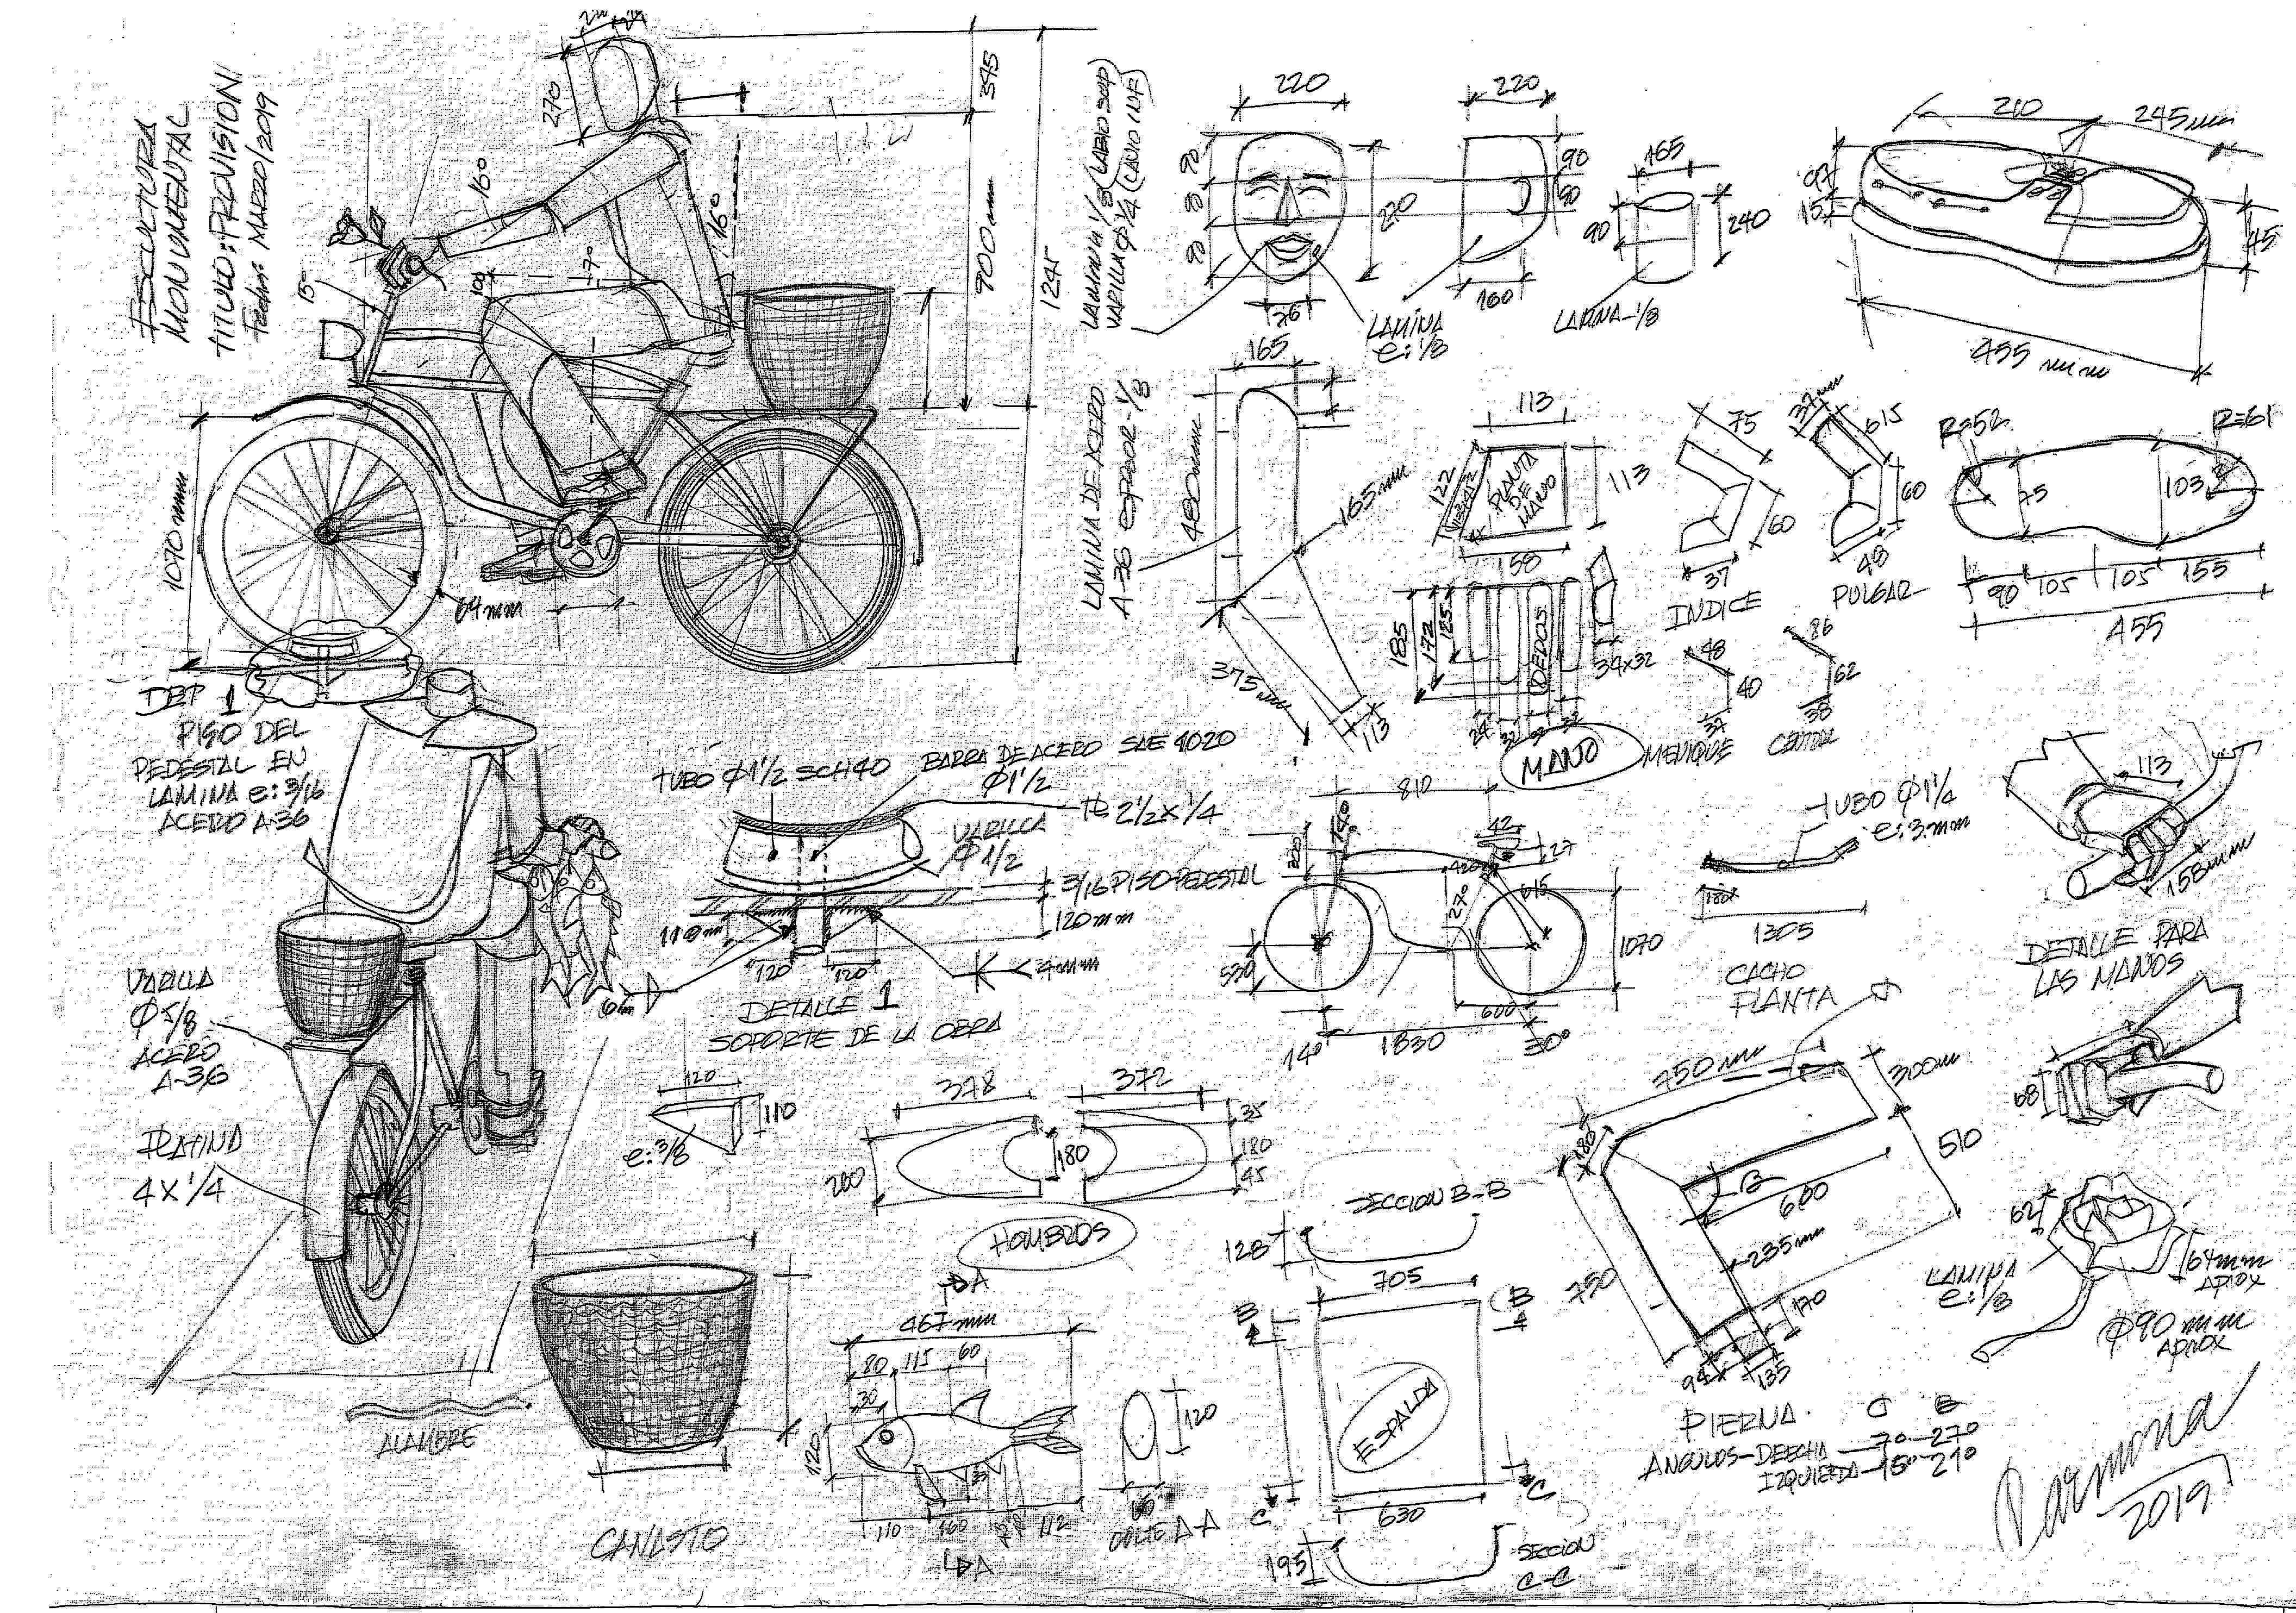 ESCULTURA
MONUMENTAL
TITULO: PROVISION
Fecha: MARZO/2019
270
16°
16°
7°
100
15°
345
900 mm
1245
1070 mm
64 mm
DET 1
PISO DEL
PEDESTAL EN
LAMINA e: 3/16
ACERO A-36
LAMINA 1/8 (LABIO SUP)
VARILLA Ø 1/4 (LAVIO INF)
220
90
80
90
270
76
LAMINA
e: 1/8
220
90
80
160
165
90
240
LAMINA-1/8
210
245 mm
97
15
45
455 mm
LAMINA DE ACERO
A-36 espesor-1/8
165
480 mm
165 mm
375 mm
113
113
122
PLANTA
DE
MANO
113
158
185
172
125
DEDOS
34x32
24
32
32
MANO
75
60
37
INDICE
37 mm
615
60
48
PULGAR
48
40
37
MENIQUE
86
62
38
CENTRAL
R=52
R=61
75
103
90
105
105
155
455
TUBO Ø1 1/2 SCH40
BARRA DE ACERO SAE 1020
Ø1 1/2
2 1/2 x 1/4
VARILLA
Ø 1/2
3/16 PISO PEDESTAL
120 mm
110 mm
120
120
4 mm
DETALLE 1
SOPORTE DE LA OBRA
120
110
e: 3/8
VARILLA
Ø 5/8
ACERO
A-36
PLATINA
4 X 1/4
810
42
27
420
27°
615
1070
530
600
14°
1830
30°
TUBO Ø 1 1/4
e: 3 mm
1305
CACHO
PLANTA
113
158 mm
DETALLE PARA
LAS MANOS
68
378
372
35
180
180
45
200
HOMBROS
SECCION B-B
128
705
B
B
ESPALDA
C
C
630
195
SECCION
C-C
750 mm
300 m
180
510
B
600
235 mm
750
170
94
135
PIERNA
ANGULOS-DEECHA-7°-27°
IZQUIERDA-15°-21°
62
64 mm
APROX
LAMINA
e: 1/8
Ø 90 mm
APROX
ALAMBRE
CANASTO
A
467 mm
80
115
60
30
120
35
110
160
112
A
120
CORTE A-A
2019